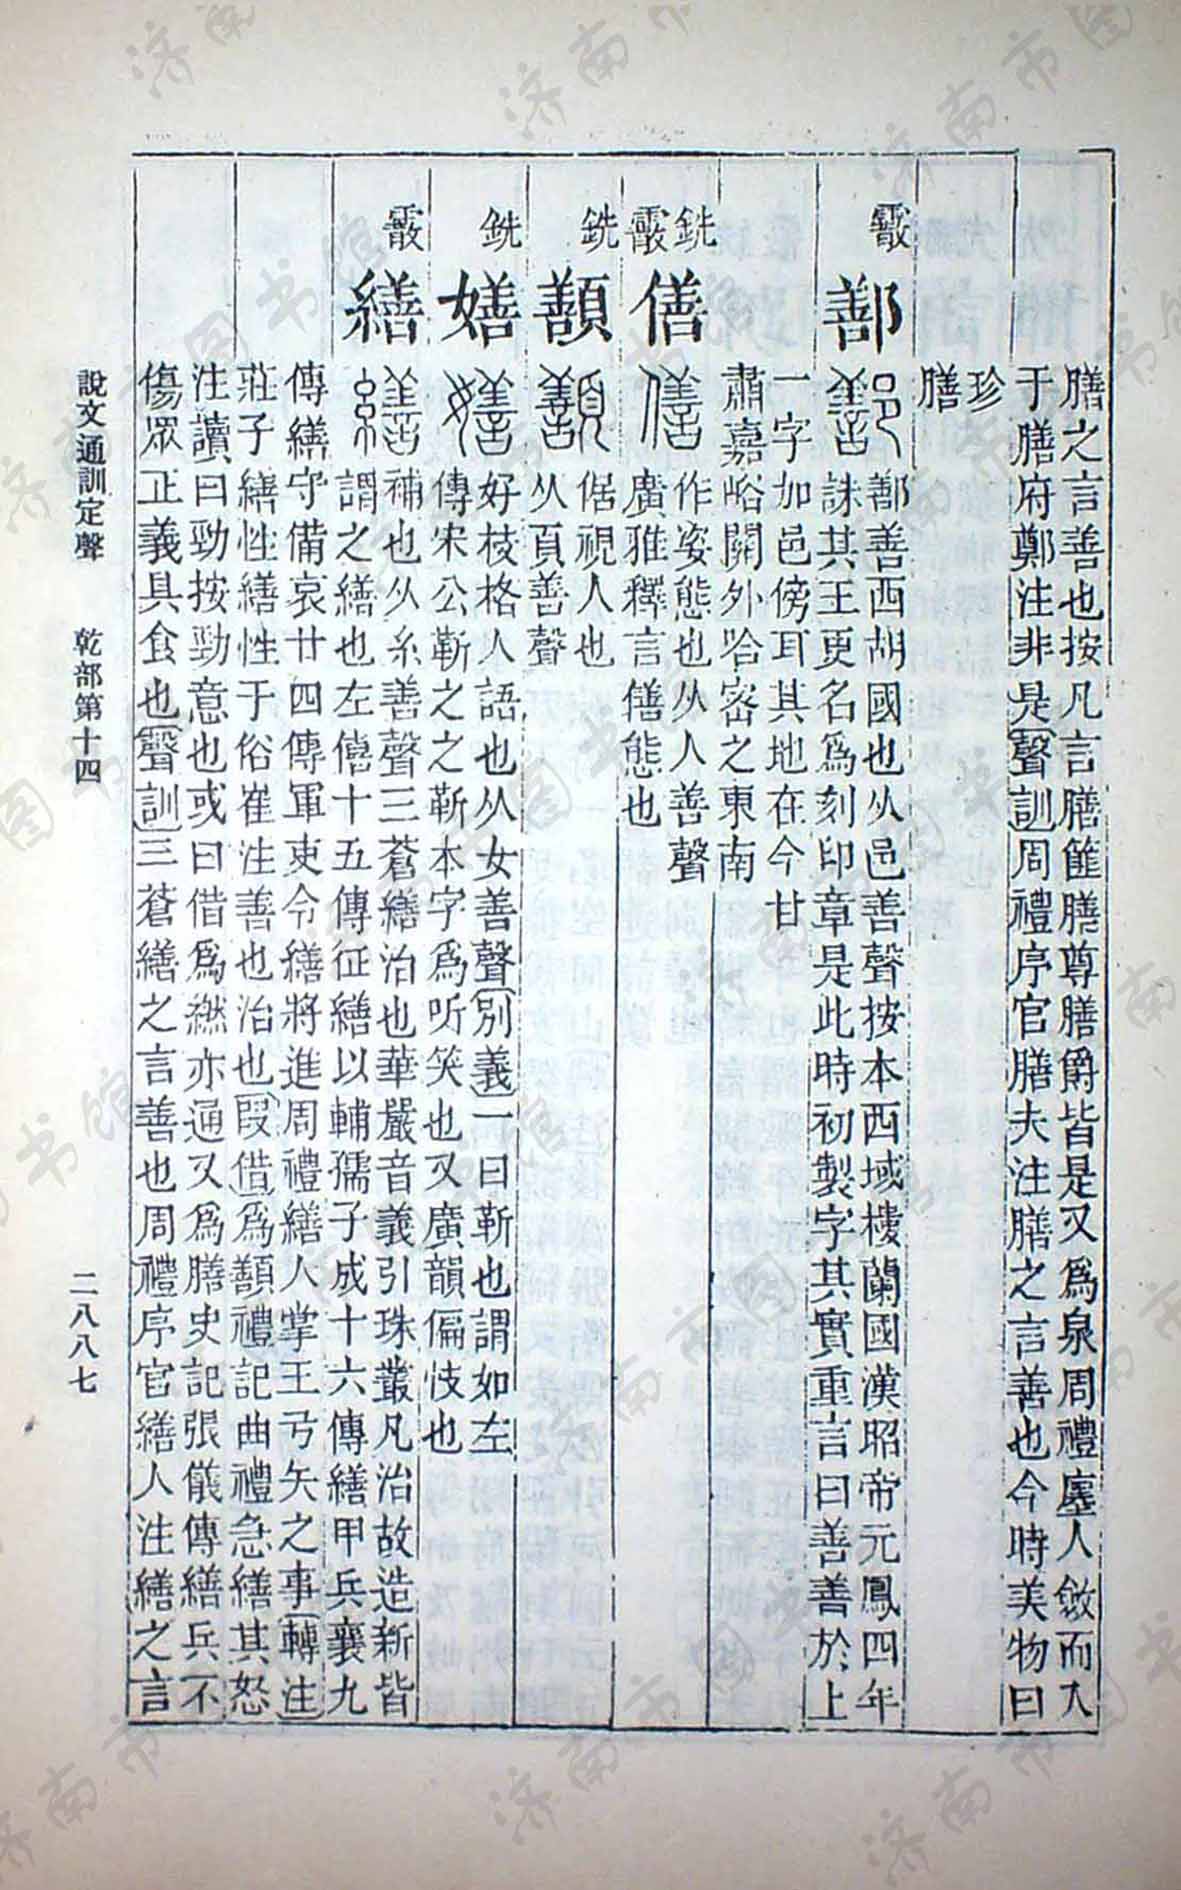 膳之言善也按凡言膳篚膳尊膳爵皆是又爲泉周禮廛人斂而入
于膳府鄭注非是聲訓周禮序官膳夫注膳之言善也今時美物曰
珍
膳
霰
鄯
鄯善西胡國也从邑善聲按本西域樓蘭國漢昭帝元鳳四年
誅其王更名爲刻印章是此時初製字其實重言曰善善於上
一字加邑傍耳其地在今甘
肅嘉峪關外哈密之東南
銑
霰
僐
作姿態也从人善聲
廣雅釋言僐態也
銑
顫
倨視人也
从頁善聲
銑
嫸
好枝格人語也从女善聲別義一曰靳也謂如左
傳宋公靳之之靳本字爲听笑也又廣韻偏忮也
霰
繕
補也从糸善聲三蒼繕治也華嚴音義引珠叢凡治故造新皆
謂之繕也左僖十五傳征繕以輔孺子成十六傳繕甲兵襄九
傳繕守備哀廿四傳軍吏令繕將進周禮繕人掌王弓矢之事轉注
莊子繕性繕性于俗崔注善也治也叚借爲顫禮記曲禮急繕其怒
注讀曰勁按勁意也或曰借爲繎亦通又爲膳史記張儀傳繕兵不
傷眾正義具食也聲訓三蒼繕之言善也周禮序官繕人注繕之言
說文通訓定聲 乾部第十四 二八八七
济南市图书馆